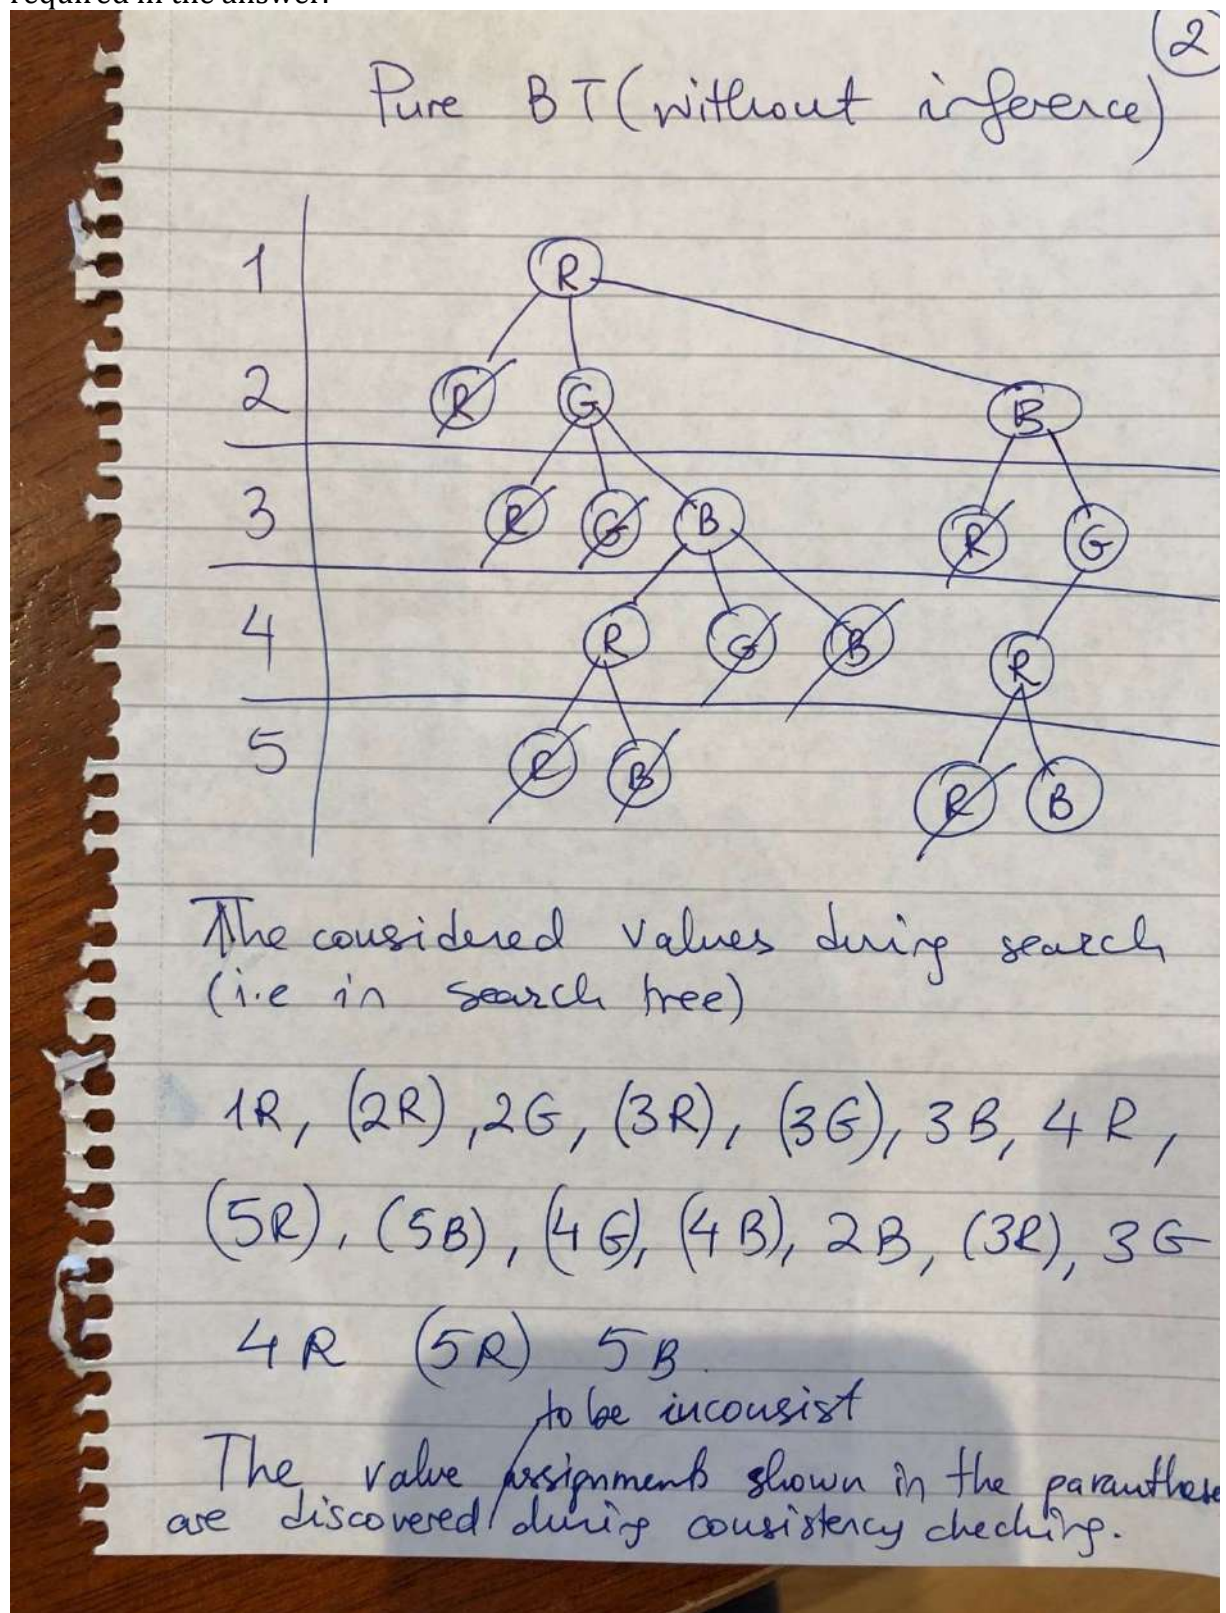 required in the answer.
2
Pure BT (without inference)
1 R
2 R G B
3 R G B R G
4 R G B R
5 R B R B
The considered values during search
(i.e in search tree)
1R, (2R), 2G, (3R), (3G), 3B, 4R,
(5R), (5B), (4G), (4B), 2B, (3R), 3G
4R (5R) 5B.
to be inconsist
The value assignments shown in the paranthese
are discovered during consistency checking.